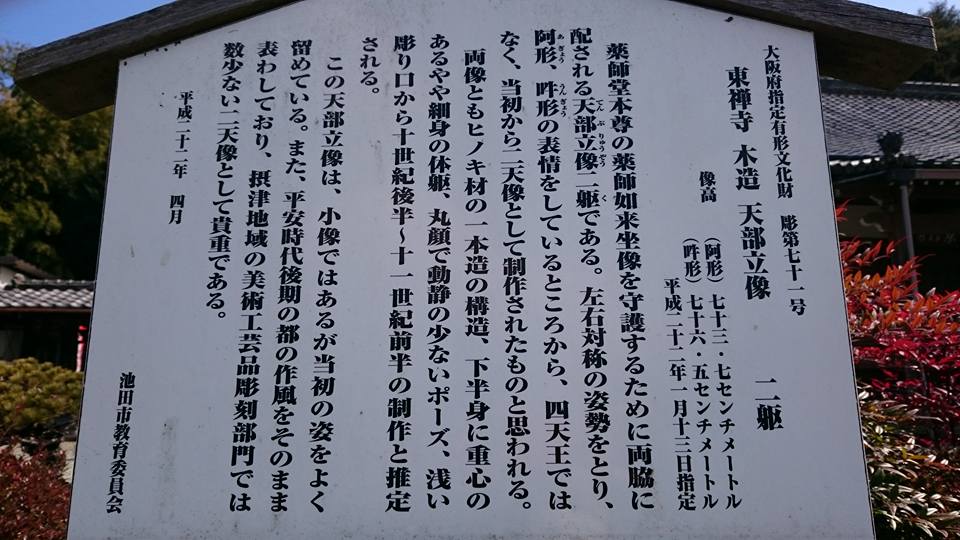 大阪府指定有形文化財 彫第七十一号
東禅寺 木造 天部立像 二躯
像高 (阿形)七十三・七センチメートル
(吽形)七十六・五センチメートル
平成二十二年一月十三日指定
薬師堂本尊の薬師如来坐像を守護するために両脇に
配される天部立像二躯である。左右対称の姿勢をとり、
阿形、吽形の表情をしているところから、四天王では
なく、当初から二天像として制作されたものと思われる。
両像ともヒノキ材の一本造の構造、下半身に重心の
あるやや細身の体躯、丸顔で動静の少ないポーズ、浅い
彫り口から十世紀後半〜十一世紀前半の制作と推定
される。
この天部立像は、小像ではあるが当初の姿をよく
留めている。また、平安時代後期の都の作風をそのまま
表わしており、摂津地域の美術工芸品彫刻部門では
数少ない二天像として貴重である。
平成二十二年 四月
池田市教育委員会